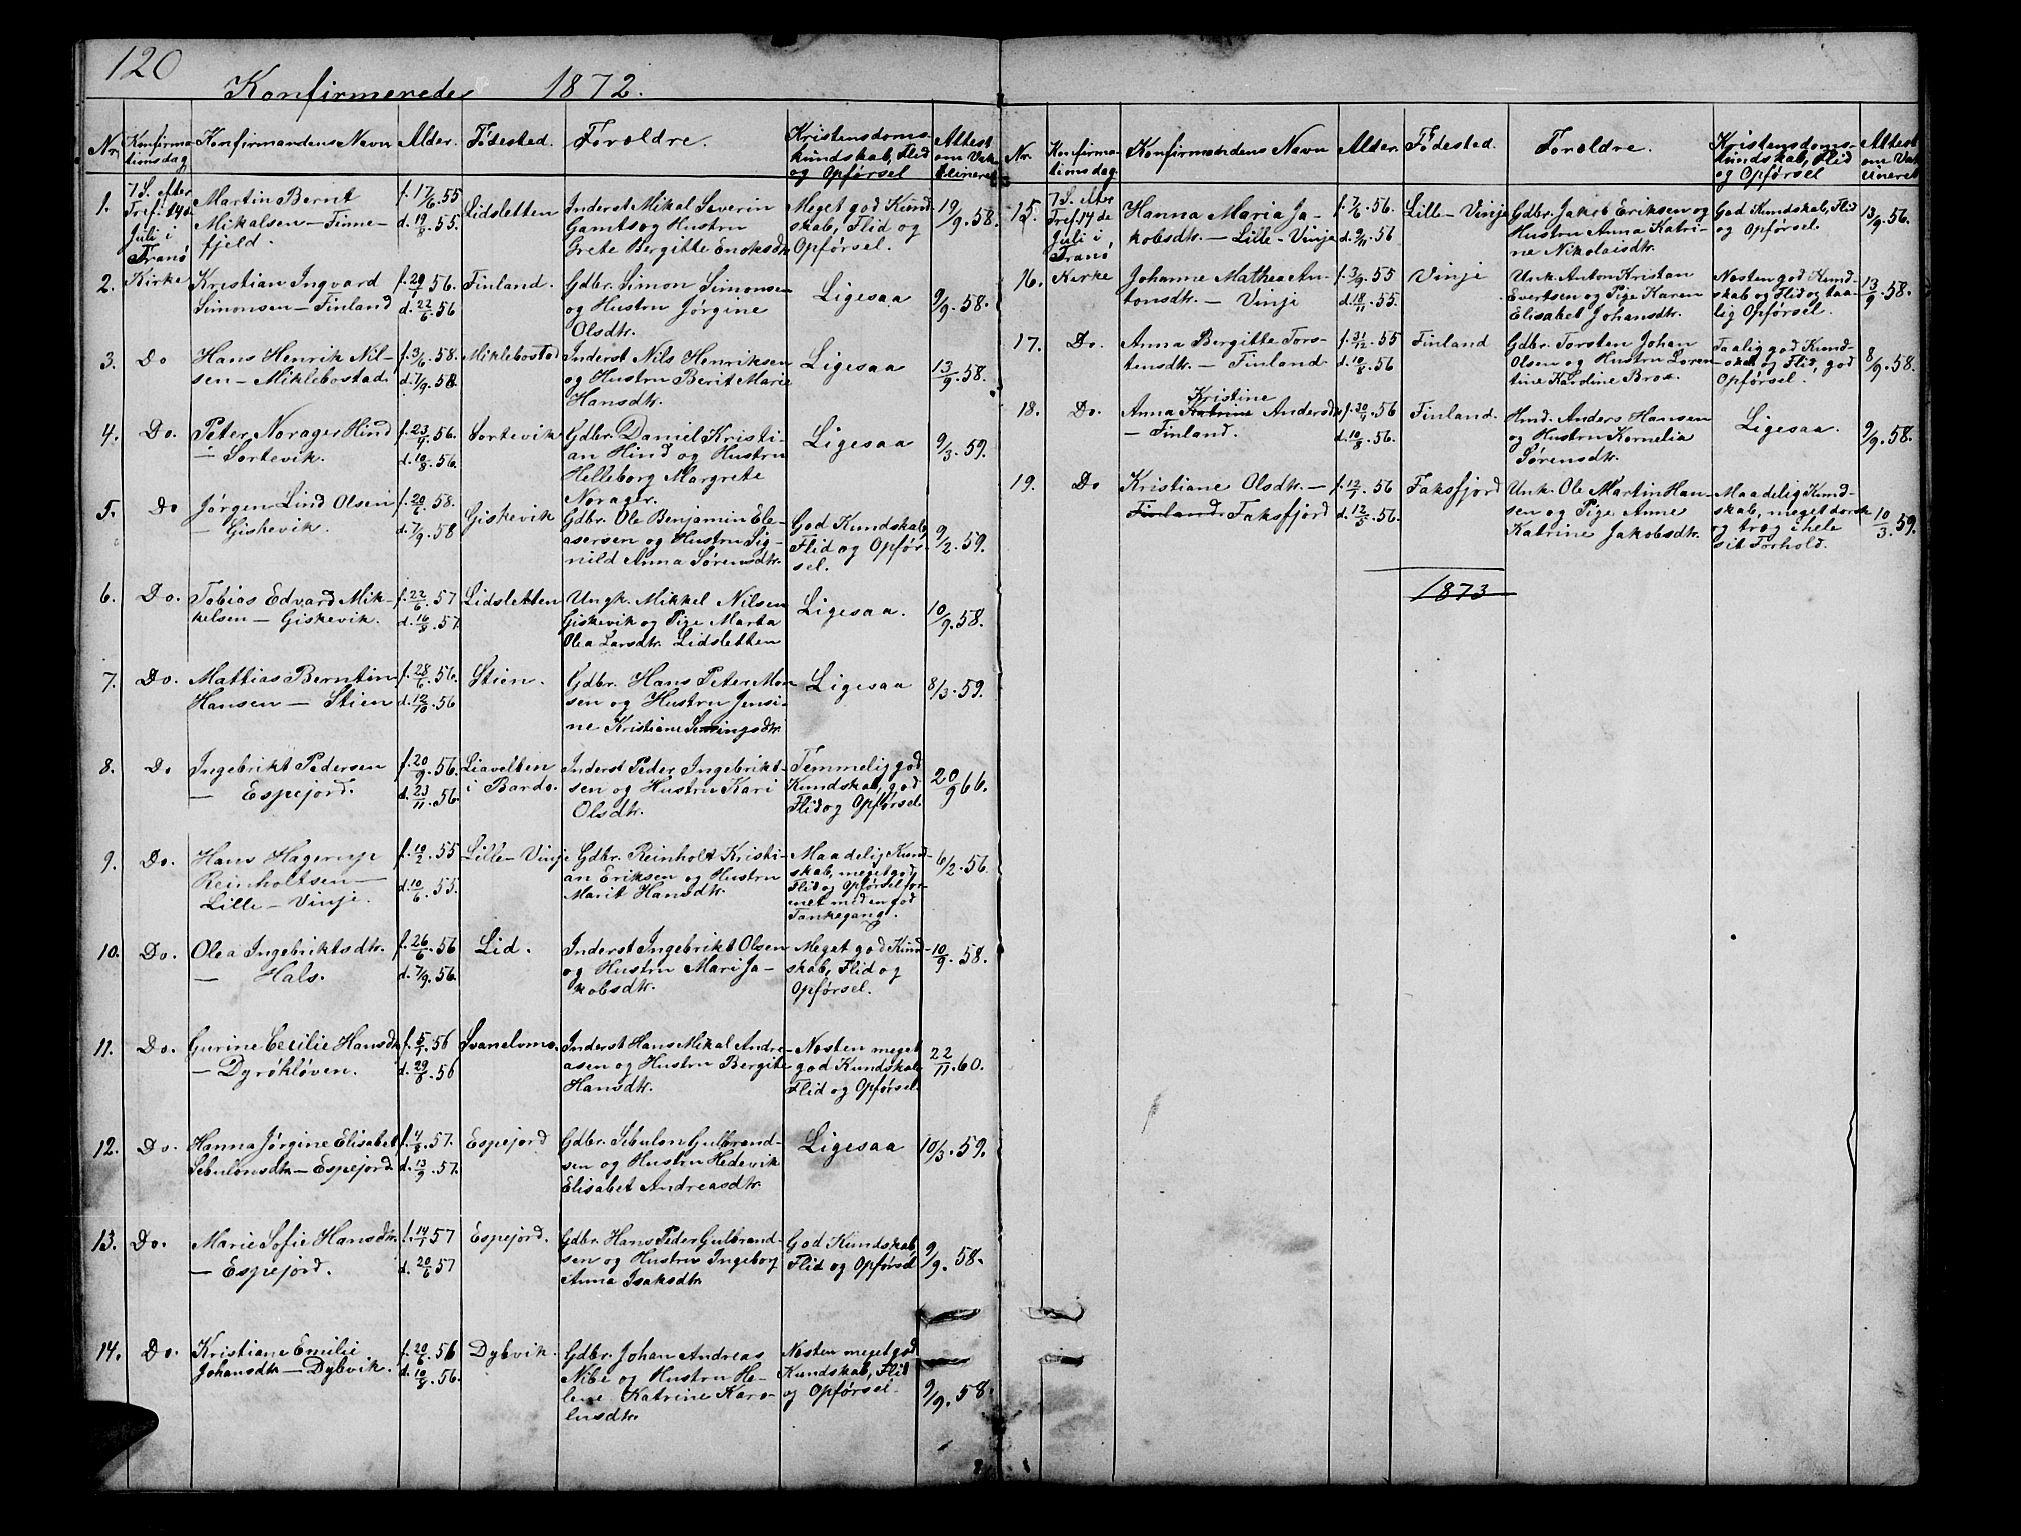 120
Konfirmerede 1872.
Nr. Konfirmationsdag Konfirmandens Navn Alder. Fødested. Forældre. Kristendomskundskab, Flid og Opførsel Attest om Vakcineret
1. 7 S. efter Tref. 14de Juli i Tranø Kirke
Martin Bernt Mikalsen — Finnefjeld.
f. 17/6.55 d. 19/8.55.
Lidsletten
Inderst Mikal Severin Gamts og Hustru Grete Bergitte Enoksdtr.
Meget god Kundskab, Flid og Opførsel.
19/9.58.
2. Kristian Ingvard Simonsen — Finland
f. 56. d. 22/6.56
Finland.
Gdbr. Simon Simonsen og Hustru Jørgine Olsdtr.
Ligesaa
9/9.58.
3. Do Hans Henrik Nilsen — Miklebostad.
f. 3/6.58. d. 7/9.58.
Miklebostad
Inderst Nils Henriksen og Hustru Berit Marie Hansdtr.
Ligesaa
13/9.58.
4. Do. Peter Norager Hind — Sortevik.
56. d. 10/8.56.
Sortevik
Gdbr. Daniel Kristian Hind og Hustru Helleborg Margrete Norager.
Ligesaa
9/3.59.
5. Do Jørgen Lind Olsen — Giskevik.
58. d. 7/9.58
Giskevik
Gdbr. Ole Benjamin Eleasersen og Hustru Signild Anna Sørensdtr.
God Kundskab, Flid og Opførsel.
9/2.59.
6. Do. Tobias Edvard Mikkelsen — Giskevik.
f. 22/6.57 d. 16/8.57.
Lidsletten
Ungk. Mikkel Nilsen Giskevik og Pige Marta Olea Larsdtr. Lidsletten
Ligesaa.
10/9.58.
7. Do. Mattias Berntin Hansen — Stien
f. 28/6.56. d. 12/10.56
Stien.
Gdbr. Hans Peter Monsen og Hustru Jensine Kristiane
Ligesaa
8/3.59.
8. Do Ingebrikt Pedersen — Espejord.
f. 20/9.56. d. 23/11.56.
Liavelten i Bardo.
Inderst Peder Ingebriktsen og Hustru Kari Olsdtr.
Temmelig god Kundskab, god Flid og Opførsel.
20/9 66.
9. Do. Hans Hagerup Reinholtsen — Lille-Vinje.
f. 10/2.55 d. 10/6.55.
Lille-Vinje
Gdbr. Reinholt Kristian Eriksen og Hustru Marit Hansdtr.
Maadelig Kundskab, meget god Flid og Opførsel, fornet med en god Tankegang.
6/2.56.
10. Do. Olea Ingebriktsdtr. — Hals.
f. 26/6.56 d. 7/9.56.
Lid.
Inderst Ingebrikt Olsen og Hustru Mari Jakobsdtr.
Meget god Kundskab, Flid og Opførsel.
10/9.58.
11. Do. Gurine Cecilie Hansdtr. — Dyrøkløven.
f. 5/1.56 d. 29/6.56
Svanelvmo.
Inderst Hans Mikal Andreasen og Hustru Bergite Hansdtr.
Næsten meget god Kundskab, Flid og Opførsel.
22/11.60.
12. Do. Hanna Jørgine Elisabet Sebulonsdtr. — Espejord.
f. 4/8.57. d. 13/9.57.
Espejord
Gdbr. Sebulon Gulbrandsen og Hustru Hedevik Elisabet Andreasdtr.
Ligesaa
10/3.59.
13. Do. Marie Sofie Hansdtr. — Espejord.
f. 14/1 57 d. 20/6 57
Espejord.
Gdbr. Hans Peder Gulbrandsen og Hustru Ingeborg Anna Isaksdtr.
God Kundskab, Flid og Opførsel
9/9. 58.
14. Do. Kristiane Emilie Johansdtr. — Dybvik.
f. 20/6.56 d. 10/8.56.
Dybvik.
Gdbr. Johan Andreas Nibe og Hustru Helene Katrine Karolusdtr.
Næsten meget god Kundskab, Flid og Opførsel.
9/9. 58.
Nr. Konfirmationsdag Konfirmandens Navn Alder. Fødested. Forældre. Kristendomskundskab, Flid og Opførsel Attest om Vakcineret
15. 7 S. efter Tref. 14de Juli i Tranø Kirke
Hanna Maria Jakobsdtr. — Lille-Vinje
f. 7/6.56. d. 9/11.56
Lille-Vinje
Gdbr. Jakob Eriksen og Hustru Anna Katrine Nikolaisdtr.
God Kundskab, Flid og Opførsel.
13/9.56.
16. Johanne Mathea Antonsdtr. — Vinje
f. 3/9.55 d. 18/11.55.
Vinje
Unk. Anton Kristan Evertsen og Pige Karen Elisabet Johansdtr.
Næsten god Kundskab og Flid og taalig Opførsel.
13/9.58.
17. Do. Anna Bergitte Torstensdtr. — Finland
f. 31/12.55 d. 10/8.56
Finland
Gdbr. Torsten Johan Olsen og Hustru Lorentine Kardine Brox.
Taalig god Kundskab og Flid, god Opførsel.
8/9.58.
18. Do. Anna Katrine Kristine Andersdtr. — Finland.
56 d. 10/8.56.
Finland.
Hmd. Anders Hansen og Hustru Kornelia Sørensdtr.
Ligesaa.
9/9.58.
19. Do Kristiane Olsdtr. — Finland. Faksfjord
f. 12/1.56 d. 12/5.56.
Faksfjord
Unk. Ole Martin Hansen og Pige Anne Katrine Jakobsdtr.
Maadelig Kundskab, meget dorsk og træg i hele sit Forhold.
10/3.59.
1873